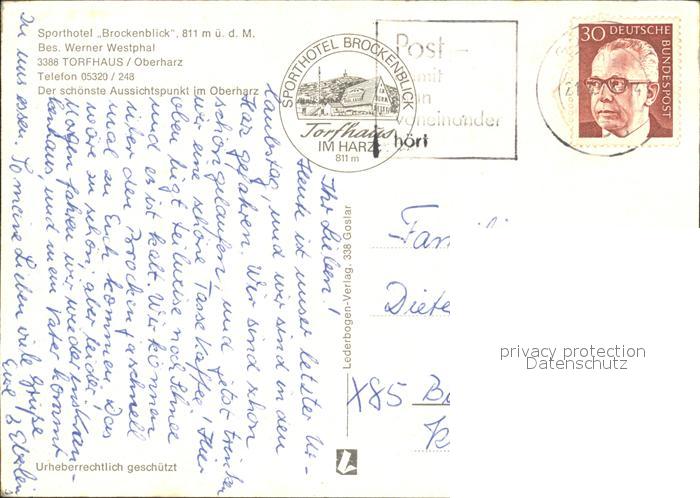 Sporthotel „Brockenblick", 811 m ü. d. M.
Bes. Werner Westphal
3388 TORFHAUS / Oberharz
Telefon 05320 / 248
Der schönste Aussichtspunkt im Oberharz
SPORTHOTEL BROCKENBLICK
Torfhaus
IM HARZ
811 m
Post –
mit
voneinander
hört
30 DEUTSCHE
BUNDESPOST
Ihr Lieben!
Heute ist unser letzter Ur-
laubstag, und wir sind in den
Harz gefahren. Wir sind schon
schön gelaufen und jetzt trinken
wir eine schöne Tasse Kaffee! Hier
oben liegt teilweise noch Schnee
und es ist kalt. Wir können
über den Brocken
mal zu Euch kommen. Das
wäre so schön, aber leider!
Morgen fahren wir wieder ins Kran-
kenhaus und mein Vater kommt
zu uns essen. So meine Lieben viele Grüße
Eure
Fam
Diete
X85 B
Lederbogen-Verlag, 338 Goslar
Urheberrechtlich geschützt
privacy protection
Datenschutz